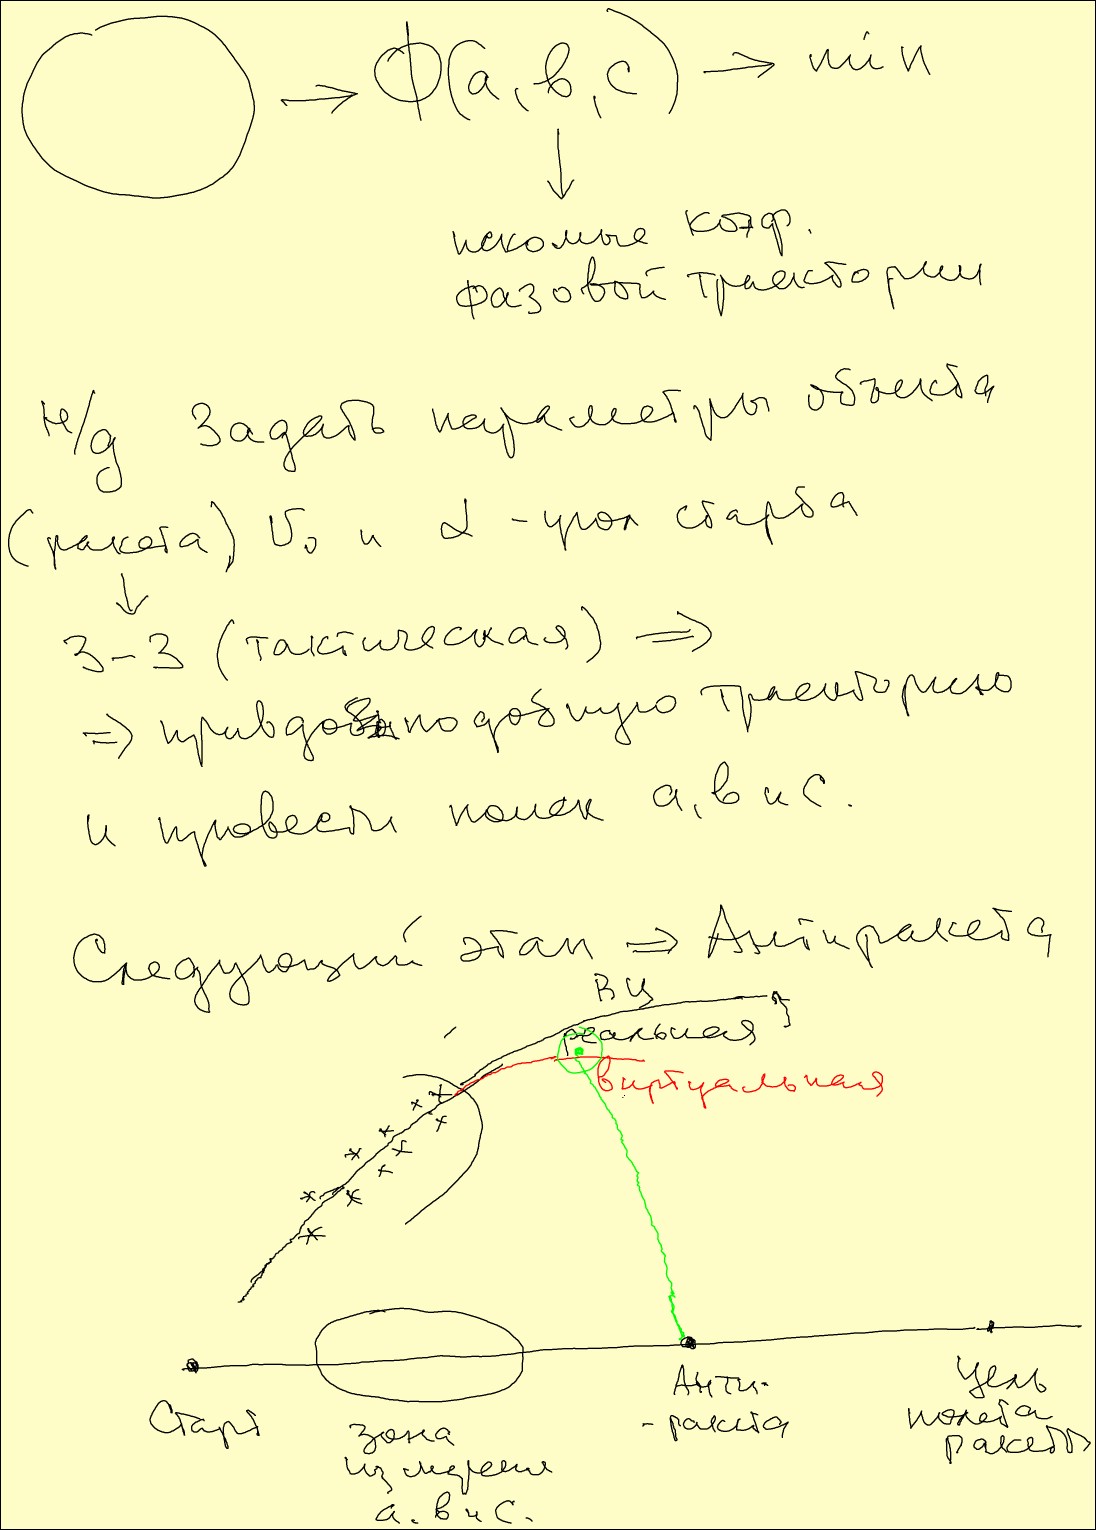 Ф(а, в, с) → min
искомые коэф.
фазовой траектории
н/д Задать параметры объекта
(ракета) V₀ и α - угол старта
З-З (тактическая) ⇒
⇒ привдоподобную траекторию
и провести поиск а, в и с.
Следующий этап ⇒ Антиракета
ВЦ
реальная
виртуальная
Старт
зона
измерения
а. в и с.
Анти-
-ракета
Цель
полета
ракеты